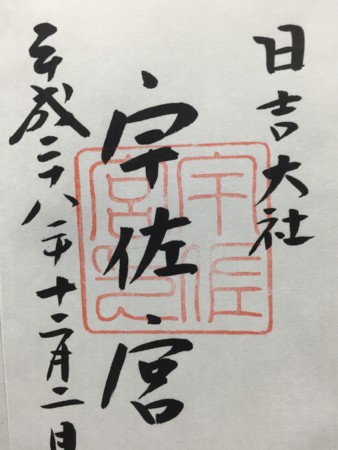 日吉大社
宇佐宮
平成二十八年十二月二日
宇佐宮印